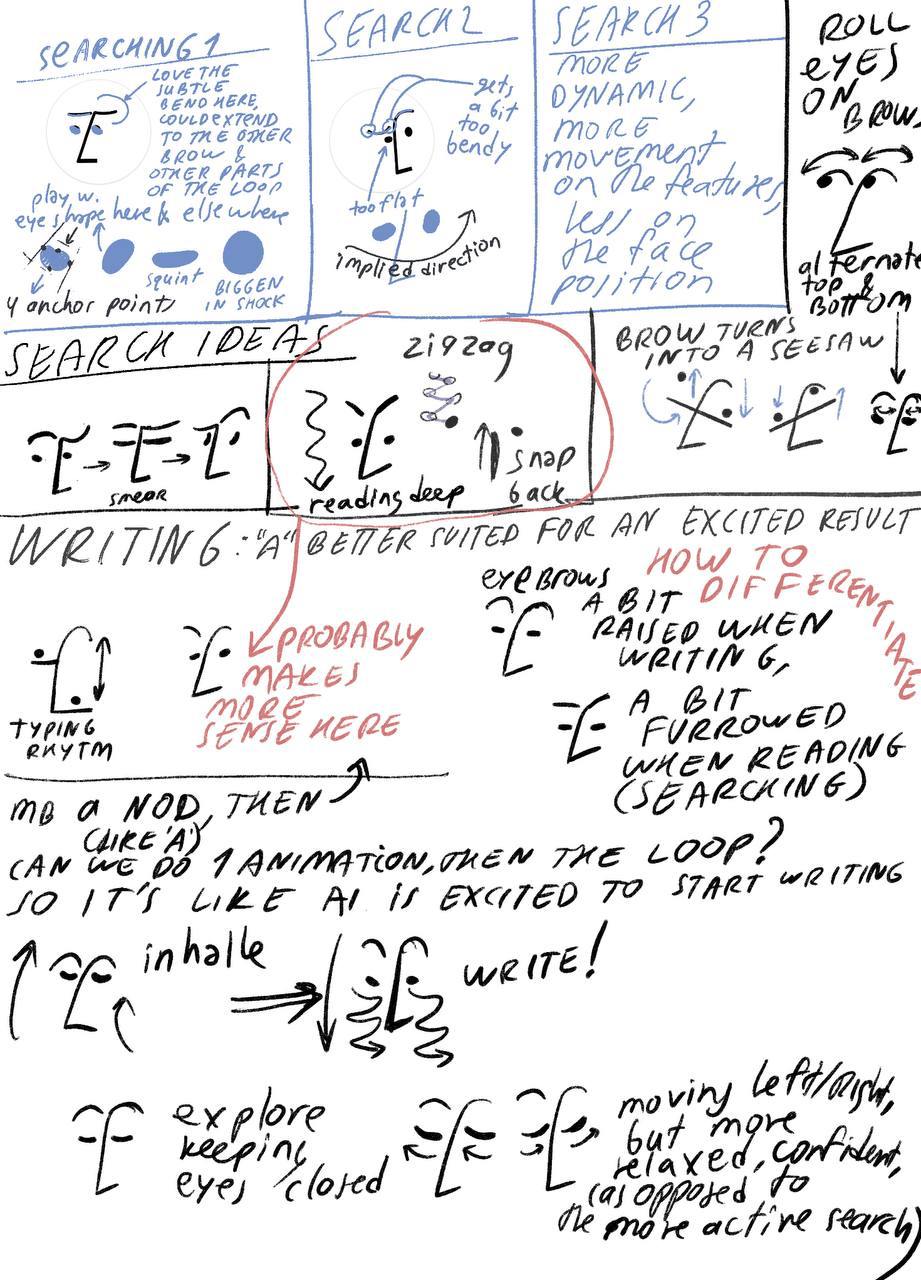 SEARCHING 1
LOVE THE
SUBTLE
BEND HERE,
COULD EXTEND
TO THE OTHER
BROW &
OTHER PARTS
OF THE LOOP
play w.
eye shape here & elsewhere
squint
BIGGEN
IN SHOCK
4 anchor points
SEARCH 2
gets
a bit
too
bendy
too flat
implied direction
SEARCH 3
MORE
DYNAMIC,
MORE
movement
on the features,
less on
the face
position
ROLL
EYES
ON
BROWS
alternate
top &
BOTTOM
SEARCH IDEAS
smear
zigzag
reading deep
snap
back
BROW TURNS
INTO A SEESAW
WRITING: "A" BETTER SUITED FOR AN EXCITED RESULT
TYPING
RHYTM
PROBABLY
MAKES
MORE
SENSE HERE
HOW TO
DIFFERENTIATE
EYEBROWS
A BIT
RAISED WHEN
WRITING,
A BIT
FURROWED
WHEN READING
(SEARCHING)
MB a NOD, THEN
(LIKE 'A')
CAN WE DO 1 ANIMATION, THEN THE LOOP?
SO IT'S LIKE AI IS EXCITED TO START WRITING
inhalle
WRITE!
explore
keeping
eyes closed
moving left/right,
but more
relaxed, confident,
(as opposed to
the more active search)